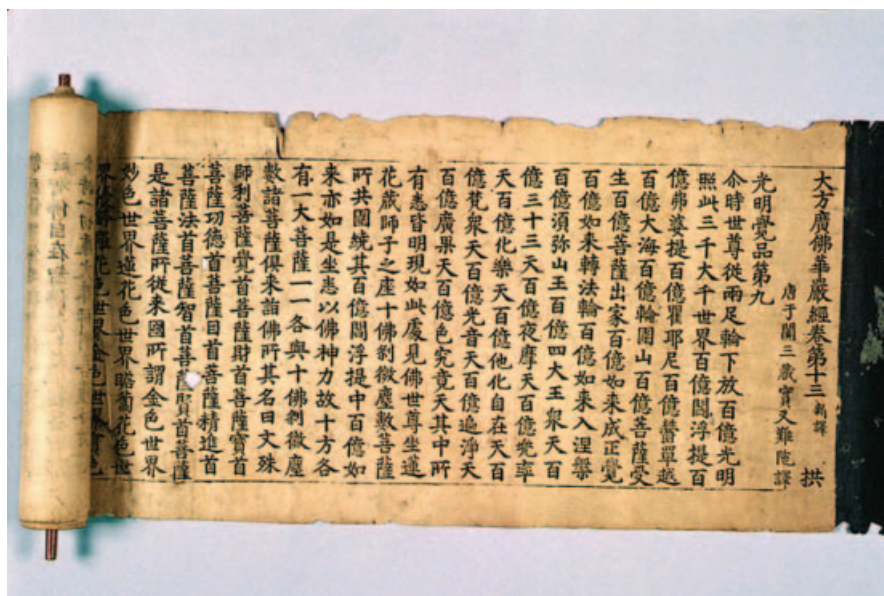 大方廣佛華嚴經卷第十三 新譯 拱
唐于闐三藏實叉難陁譯
光明覺品第九
尒時世尊從兩足輪下放百億光明
照此三千大千世界百億閻浮提百
億弗婆提百億瞿耶尼百億鬱單越
百億大海百億輪圍山百億菩薩受
生百億菩薩出家百億如來成正覺
百億如來轉法輪百億如來入涅槃
百億湏弥山王百億四大王衆天百
億三十三天百億夜摩天百億兜率
天百億化樂天百億他化自在天百
億梵衆天百億光音天百億遍淨天
百億廣果天百億色究竟天其中所
有悉皆明現如此處見佛世尊坐蓮
花藏師子之座十佛剎微塵數菩薩
所共圍繞其百億閻浮提中百億如
來亦如是坐悉以佛神力故十方各
有一大菩薩一一各與十佛剎微塵
數諸菩薩俱来詣佛所其名曰文殊
師利菩薩覺首菩薩財首菩薩寶首
菩薩功德首菩薩目首菩薩精進首
菩薩法首菩薩智首菩薩賢首菩薩
是諸菩薩所從来國所謂金色世界
妙色世界蓮花色世界薝蔔花色世
界優鉢羅花色世界金色世界寶色